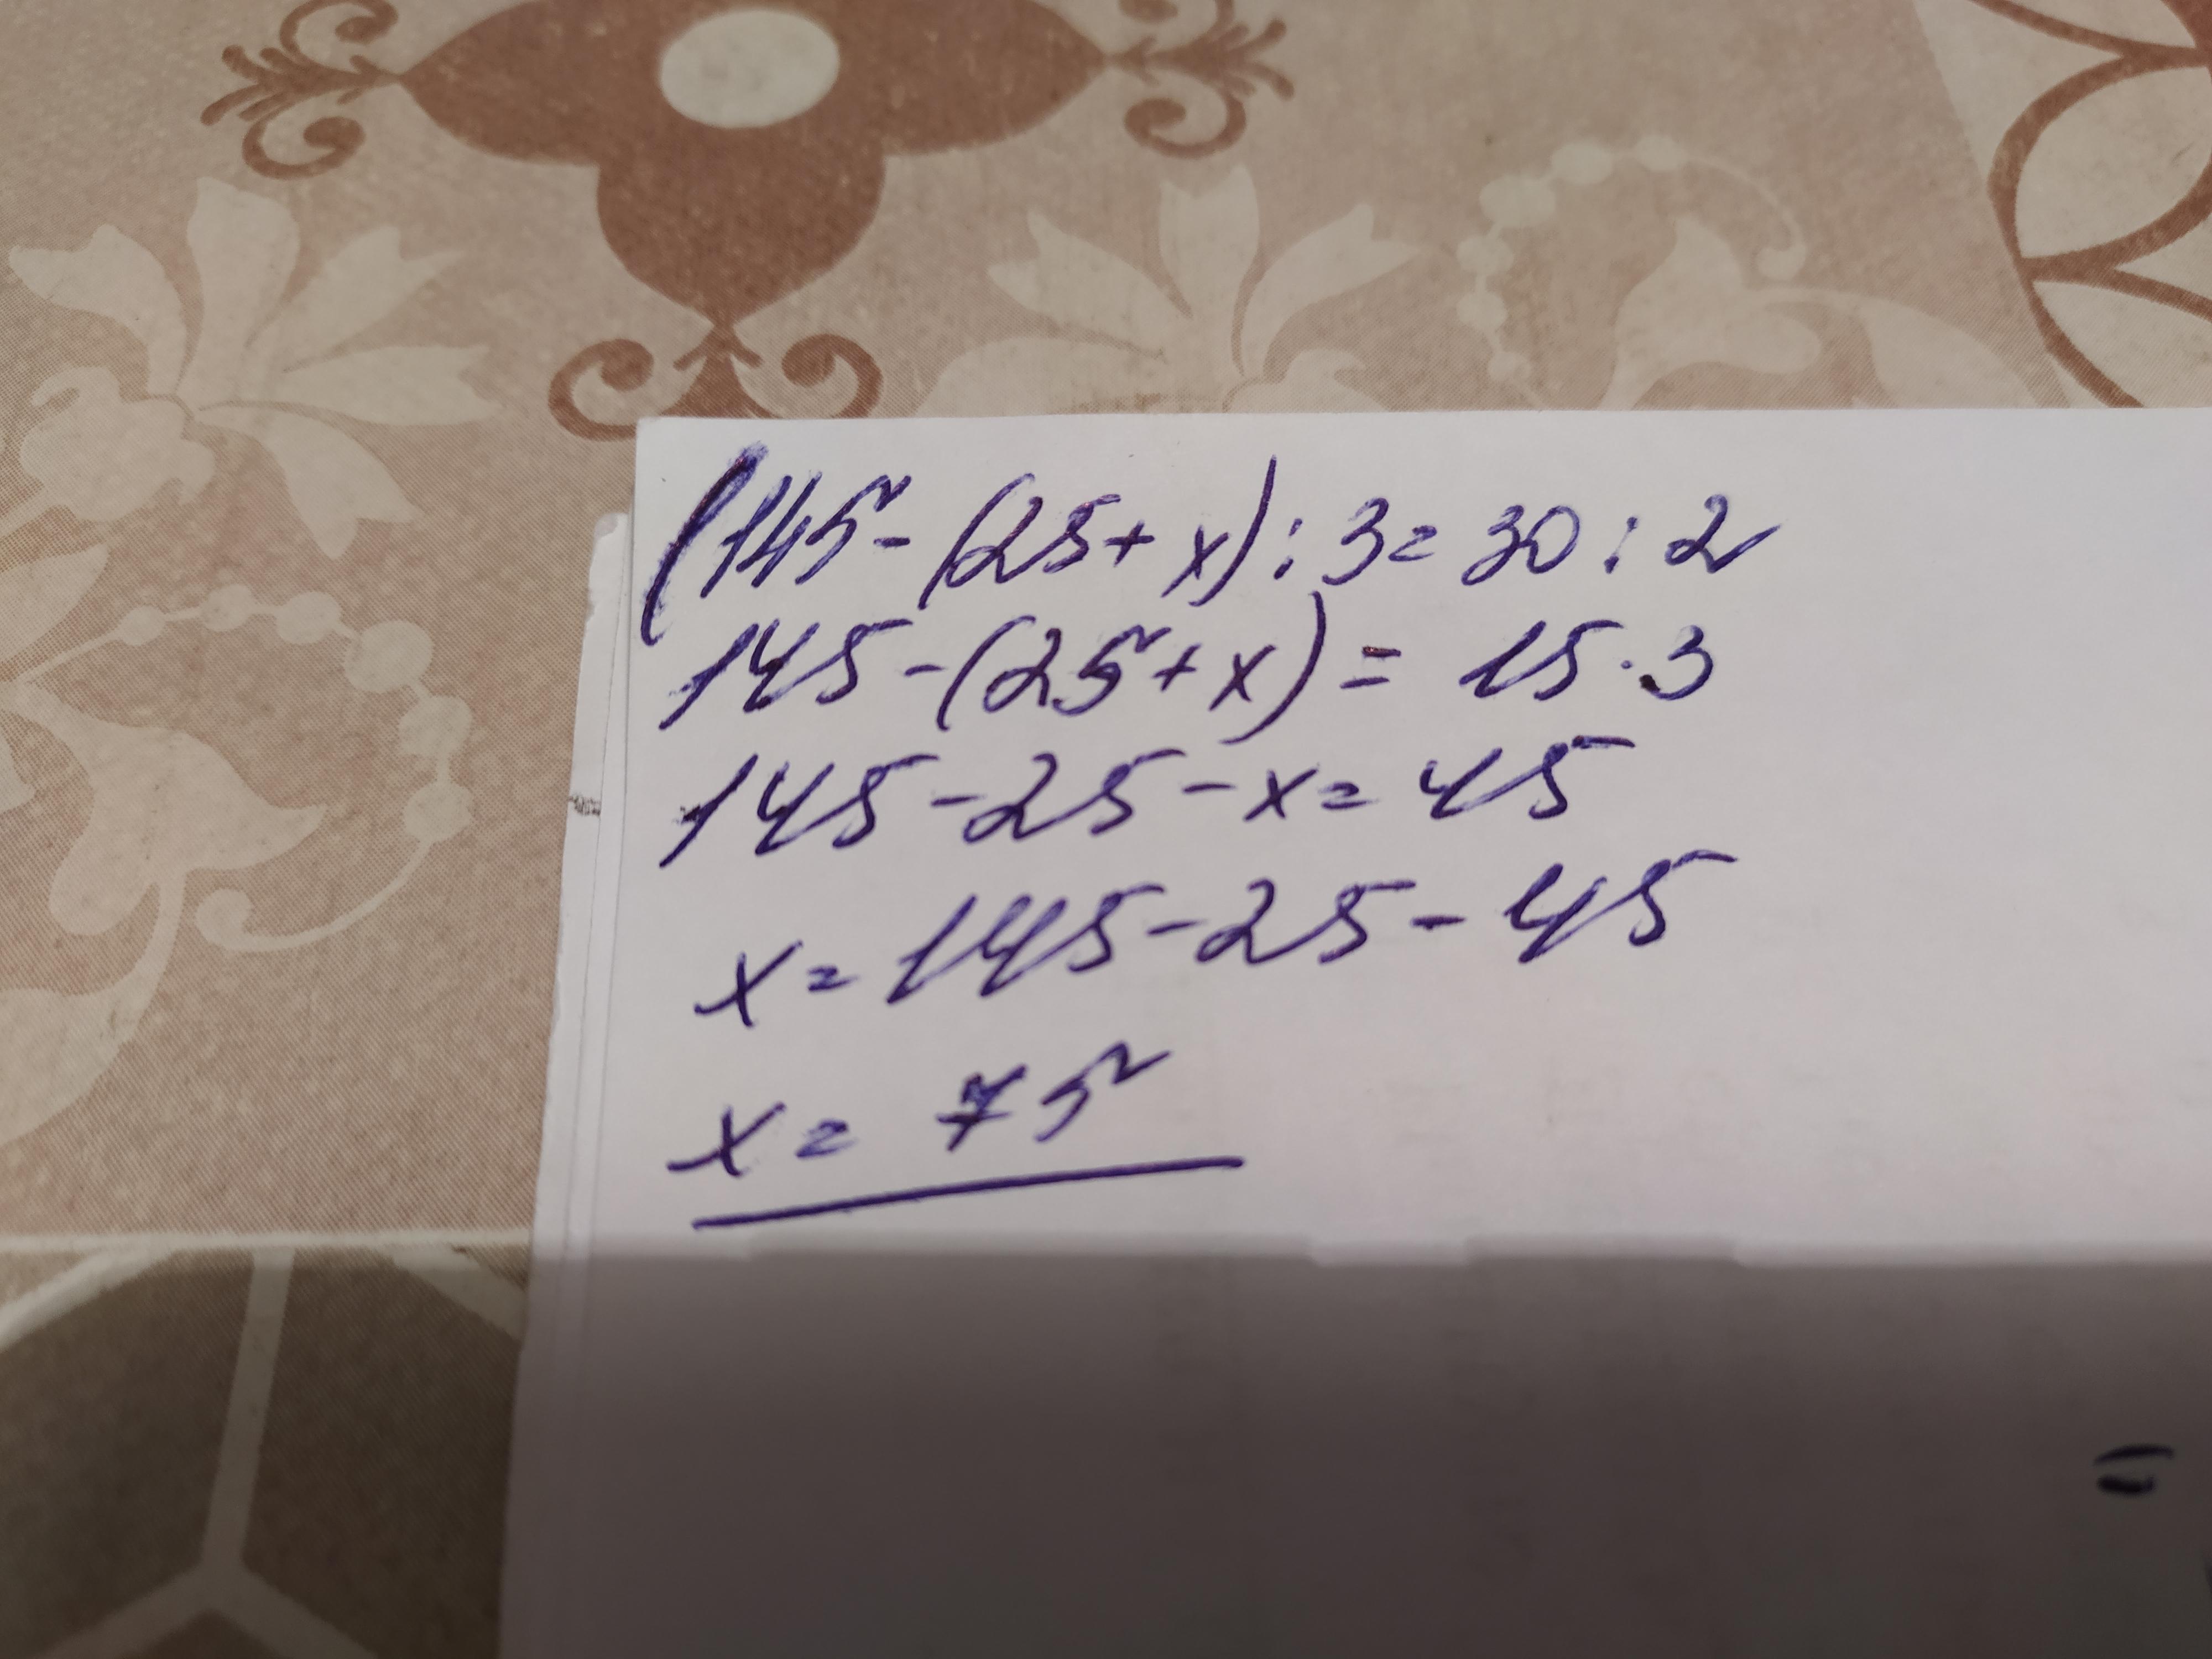 (145-(25+x):3=30:2
145-(25+x)=15·3
145-25-x=45
x=145-25-45
x=75
=